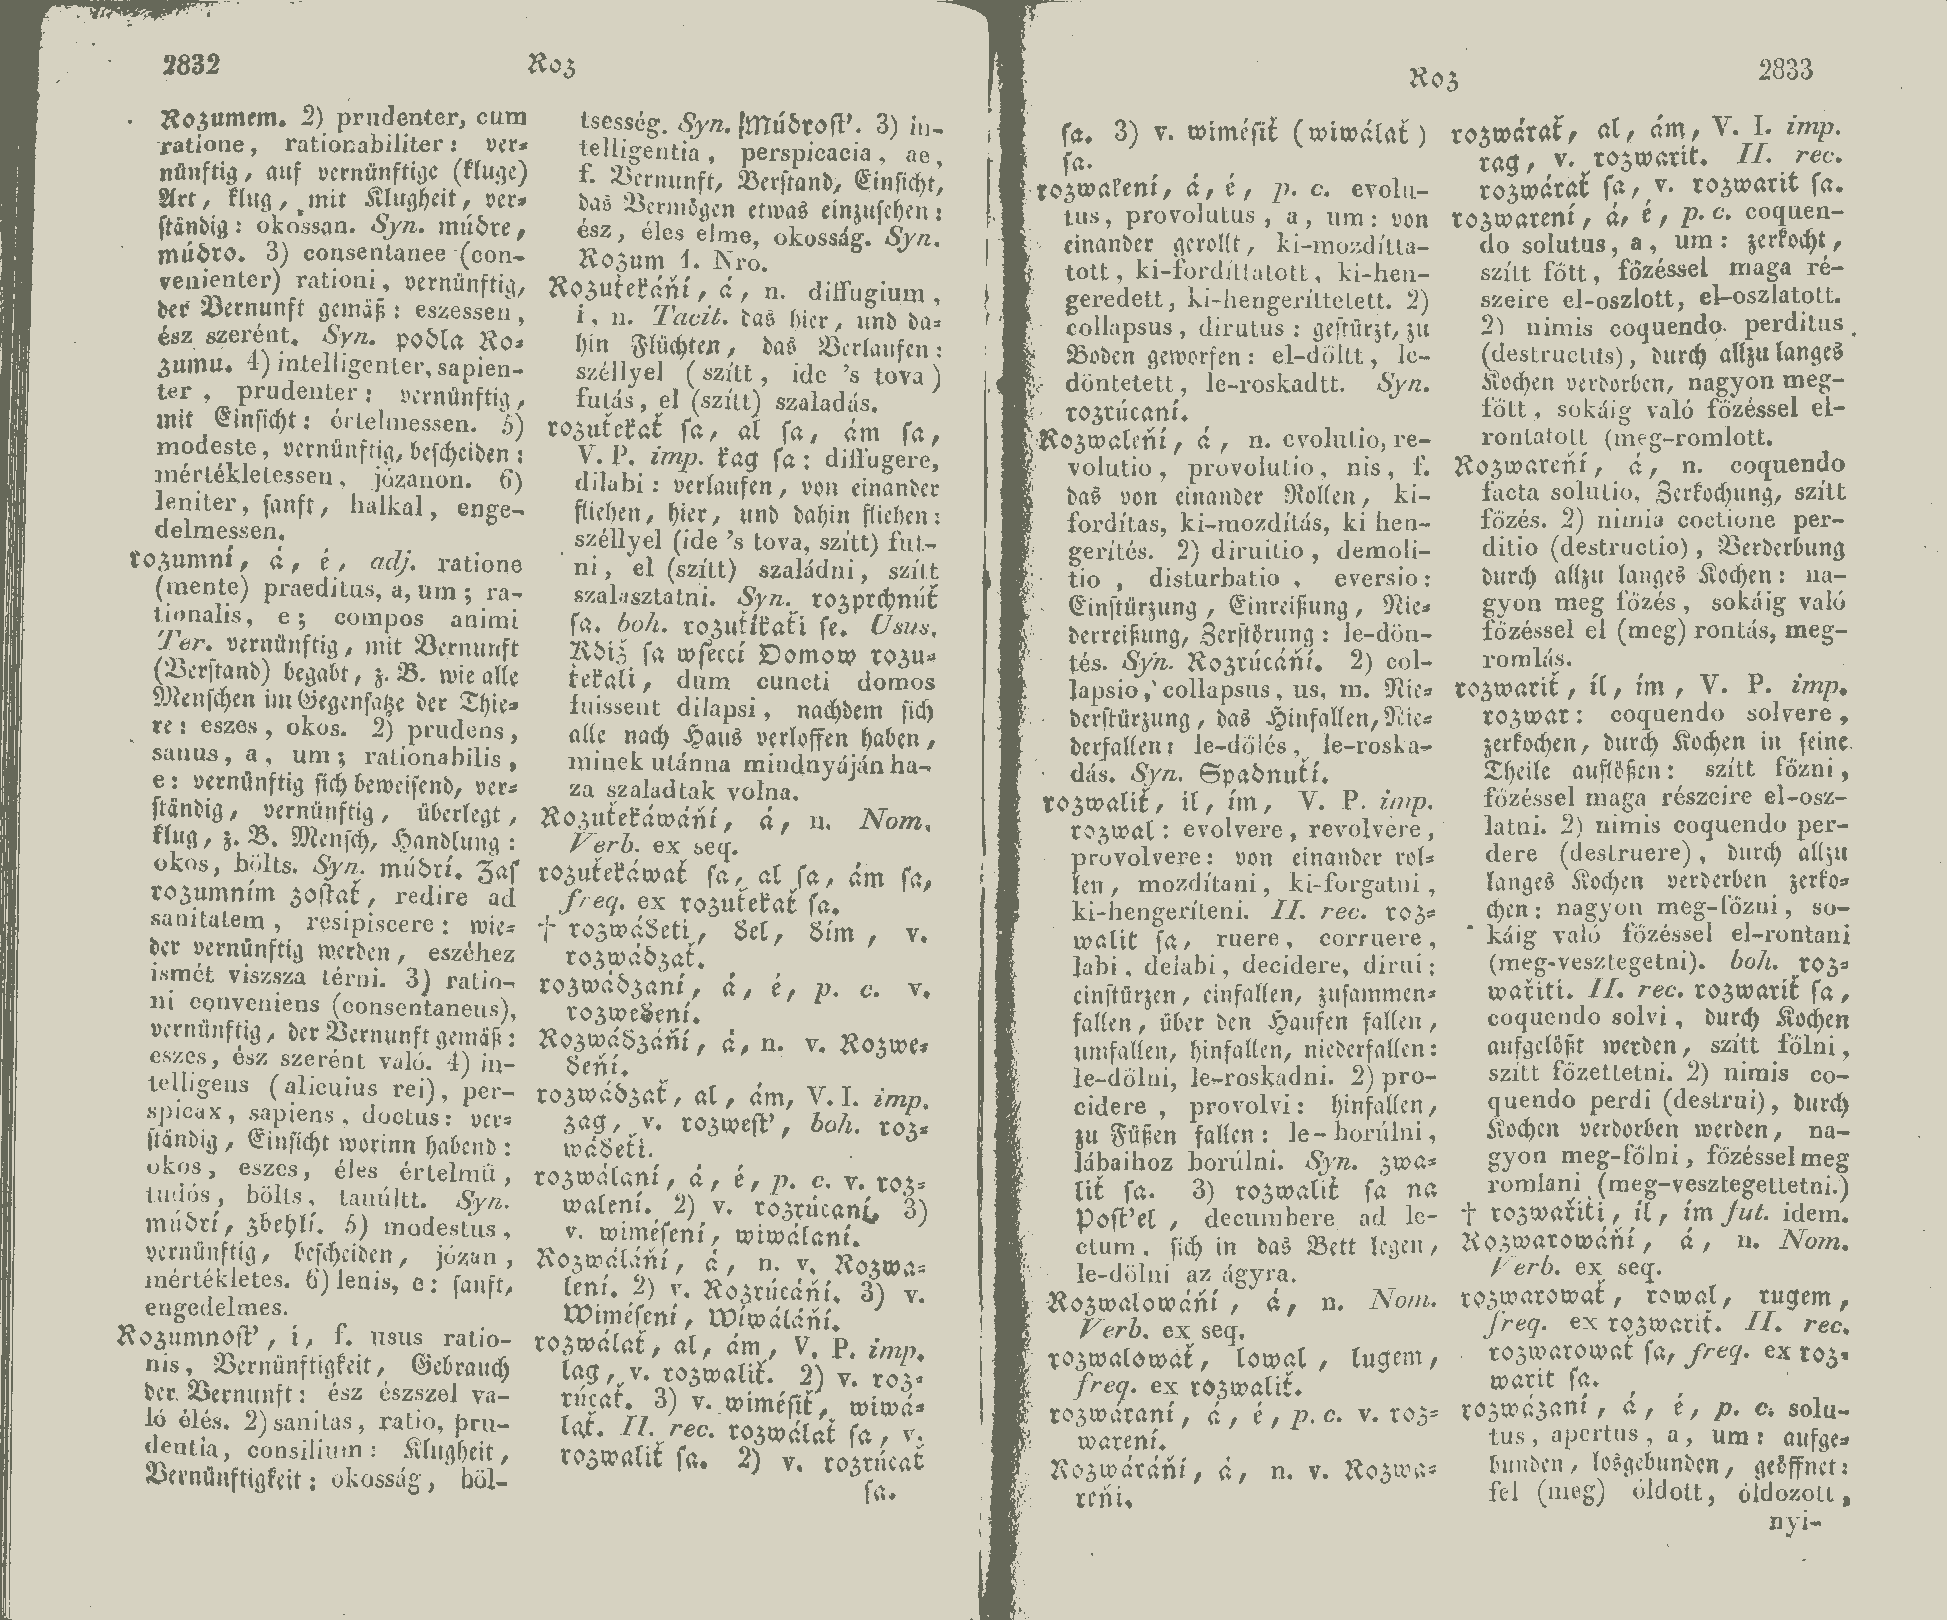 2832
Roz
Rozumem. 2) prudenter, cum
ratione, rationabiliter: ver=
nünftig, auf vernünftige (kluge)
Art, klug, mit Klugheit, ver=
ständig: okossan. Syn. múdre,
múdro. 3) consentanee (con-
venienter) rationi, vernünftig,
der Vernunft gemäß: eszessen,
ész szerént. Syn. podla Ro=
zumu. 4) intelligenter, sapien-
ter, prudenter: vernünftig,
mit Einsicht: értelmessen. 5)
modeste, vernünftig, bescheiden:
mértékletessen, józanon. 6)
leniter, sanft, halkal, enge-
delmessen.
rozumní, á, é, adj. ratione
(mente) praeditus, a, um; ra-
tionalis, e; compos animi
Ter. vernünftig, mit Vernunft
(Verstand) begabt, z. B. wie alle
Menschen im Gegensatze der Thie=
re: eszes, okos. 2) prudens,
sanus, a, um; rationabilis,
e: vernünftig sich beweisend, ver=
ständig, vernünftig, überlegt,
klug, z. B. Mensch, Handlung:
okos, bölts. Syn. múdrí. Zas
rozumním zostať, redire ad
sanitatem, resipiscere: wie=
der vernünftig werden, eszéhez
ismét viszsza térni. 3) ratio-
ni conveniens (consentaneus),
vernünftig, der Vernunft gemäß:
eszes, ész szerént való. 4) in-
telligens (alicuius rei), per-
spicax, sapiens, doctus: ver=
ständig, Einsicht worinn habend:
okos, eszes, éles értelmü,
tudós, bölts, tanúltt. Syn.
múdrí, zbehlí. 5) modestus,
vernünftig, bescheiden, józan,
mértékletes. 6) lenis, e: sanft,
engedelmes.
Rozumnosť, i, f. usus ratio-
nis, Vernünftigkeit, Gebrauch
der Vernunft: ész észszel va-
ló élés. 2) sanitas, ratio, pru-
dentia, consilium: Klugheit,
Vernünftigkeit: okosság, böl-
tsesség. Syn. Múdrosť. 3) in-
telligentia, perspicacia, ae,
f. Vernunft, Verstand, Einsicht,
das Vermögen etwas einzusehen:
ész, éles elme, okosság. Syn.
Rozum 1. Nro.
Rozuťekáňí, á, n. diffugium,
i, n. Tacit. das hier, und da=
hin Flüchten, das Verlaufen:
széllyel (szítt, ide 's tova)
futás, el (szítt) szaladás.
rozuťekať sa, al sa, ám sa,
V. P. imp. kag sa: diffugere,
dilabi: verlaufen, von einander
fliehen, hier, und dahin fliehen:
széllyel (ide 's tova, szítt) fut-
ni, el (szítt) szaládni, szítt
szalasztatni. Syn. rozprchnúť
sa. boh. rozutíkati se. Usus.
Kdiž sa wsecci Domow rozu=
ťekali, dum cuncti domos
fuissent dilapsi, nachdem sich
alle nach Haus verloffen haben,
minekutánna mindnyáján ha-
za szaladtak volna.
Rozuťekáwáňí, á, n. Nom.
Verb. ex seq.
rozuťekáwať sa, al sa, ám sa,
freq. ex rozuťekať sa.
† rozwáďeti, ďel, ďím, v.
rozwádzať.
rozwádzaní, á, é, p. c. v.
rozweďení.
Rozwádzáňí, á, n. v. Rozwe=
ďeňí.
rozwádzať, al, ám, V. I. imp.
zag, v. rozwesť, boh. roz=
wáďeti.
rozwálaní, á, é, p. c. v. roz=
walení. 2) v. rozrúcaní. 3)
v. wimésení, wiwálaní.
Rozwáláňí, á, n. v. Rozwa=
lení. 2) v. Rozrúcáňí. 3) v.
Wimésení, Wiwáláňí.
rozwálať, al, ám, V. P. imp.
lag, v. rozwaliť. 2) v. roz=
rúcať. 3) v. wimésiť, wiwá=
lať. II. rec. rozwálať sa, v.
rozwaliť sa. 2) v. rozrúcať
sa.
Roz
2833
sa. 3) v. wimésiť (wiwálať)
sa.
rozwalení, á, é, p. c. evolu-
tus, provolutus, a, um: von
einander gerollt, ki-mozdítta-
tott, ki-fordíttatott, ki-hen-
geredett, ki-hengeríttetett. 2)
collapsus, dirutus: gestürzt, zu
Boden geworfen: el-döltt, le-
döntetett, le-roskadtt. Syn.
rozrúcaní.
Rozwaleňí, á, n. evolutio, re-
volutio, provolutio, nis, f.
das von einander Rollen, ki-
fordítas, ki-mozdítás, ki hen-
gerítés. 2) diruitio, demoli-
tio, disturbatio, eversio:
Einstürzung, Einreißung, Nie=
derreißung, Zerstörung: le-dön-
tés. Syn. Rozrúcáňí. 2) col-
lapsio, collapsus, us, m. Nie=
derstürzung, das Hinfallen, Nie=
derfallen: le-dölés, le-roska-
dás. Syn. Spadnutí.
rozwaliť, il, ím, V. P. imp.
rozwal: evolvere, revolvere,
provolvere: von einander rol=
len, mozdítani, ki-forgatni,
ki-hengeríteni. II. rec. roz=
waliť sa, ruere, corruere,
labi, delabi, decidere, dirui:
einstürzen, einfallen, zusammen=
fallen, über den Haufen fallen,
umfallen, hinfallen, niederfallen:
le-dölni, le-roskadni. 2) pro-
cidere, provolvi: hinfallen,
zu Füßen fallen: le-borúlni,
lábaihoz borúlni. Syn. zwa=
liť sa. 3) rozwaliť sa na
Posť'el, decumbere ad le-
ctum, sich in das Bett legen,
le-dölni az ágyra.
Rozwalowáňí, á, n. Nom.
Verb. ex seq.
rozwalowať, lowal, lugem,
freq. ex rozwaliť.
rozwáraní, á, é, p. c. v. roz=
warení.
Rozwáráňí, á, n. v. Rozwa=
reňi.
rozwárať, al, ám, V. I. imp.
rag, v. rozwariť. II. rec.
rozwárať sa, v. rozwariť sa.
rozwarení, á, é, p. c. coquen-
do solutus, a, um: zerkocht,
szítt fött, főzéssel maga ré-
szeire el-oszlott, el-oszlatott.
2) nimis coquendo perditus
(destructus), durch allzu langes
Kochen verdorben, nagyon meg-
fött, sokáig való főzéssel el-
rontatott (meg-romlott.
Rozwareňí, á, n. coquendo
facta solutio, Zerkochung, szítt
főzés. 2) nimia coctione per-
ditio (destructio), Verderbung
durch allzu langes Kochen: na-
gyon meg főzés, sokáig való
főzéssel el (meg) rontás, meg-
romlás.
rozwariť, il, ím, V. P. imp.
rozwar: coquendo solvere,
zerkochen, durch Kochen in seine
Theile auflößen: szítt főzni,
főzéssel maga részeire el-osz-
latni. 2) nimis coquendo per-
dere (destruere), durch allzu
langes Kochen verderben zerko=
chen: nagyon meg-főzni, so-
káig való főzéssel el-rontani
(meg-vesztegetni). boh. roz=
wařiti. II. rec. rozwariť sa,
coquendo solvi, durch Kochen
aufgelößt werden, szítt fölni,
szítt főzettetni. 2) nimis co-
quendo perdi (destrui), durch
Kochen verdorben werden, na-
gyon meg-fölni, főzéssel meg
romlani (meg-vesztegettetni.)
† rozwařiti, il, ím fut. idem.
Rozwarowáňí, á, n. Nom.
Verb. ex seq.
rozwarowať, rowal, rugem,
freq. ex rozwariť. II. rec.
rozwarowať sa, freq. ex roz=
warit sa.
rozwázaní, á, é, p. c. solu-
tus, apertus, a, um: aufge=
bunden, losgebunden, geöffnet:
fel (meg) óldott, óldozott,
nyi-